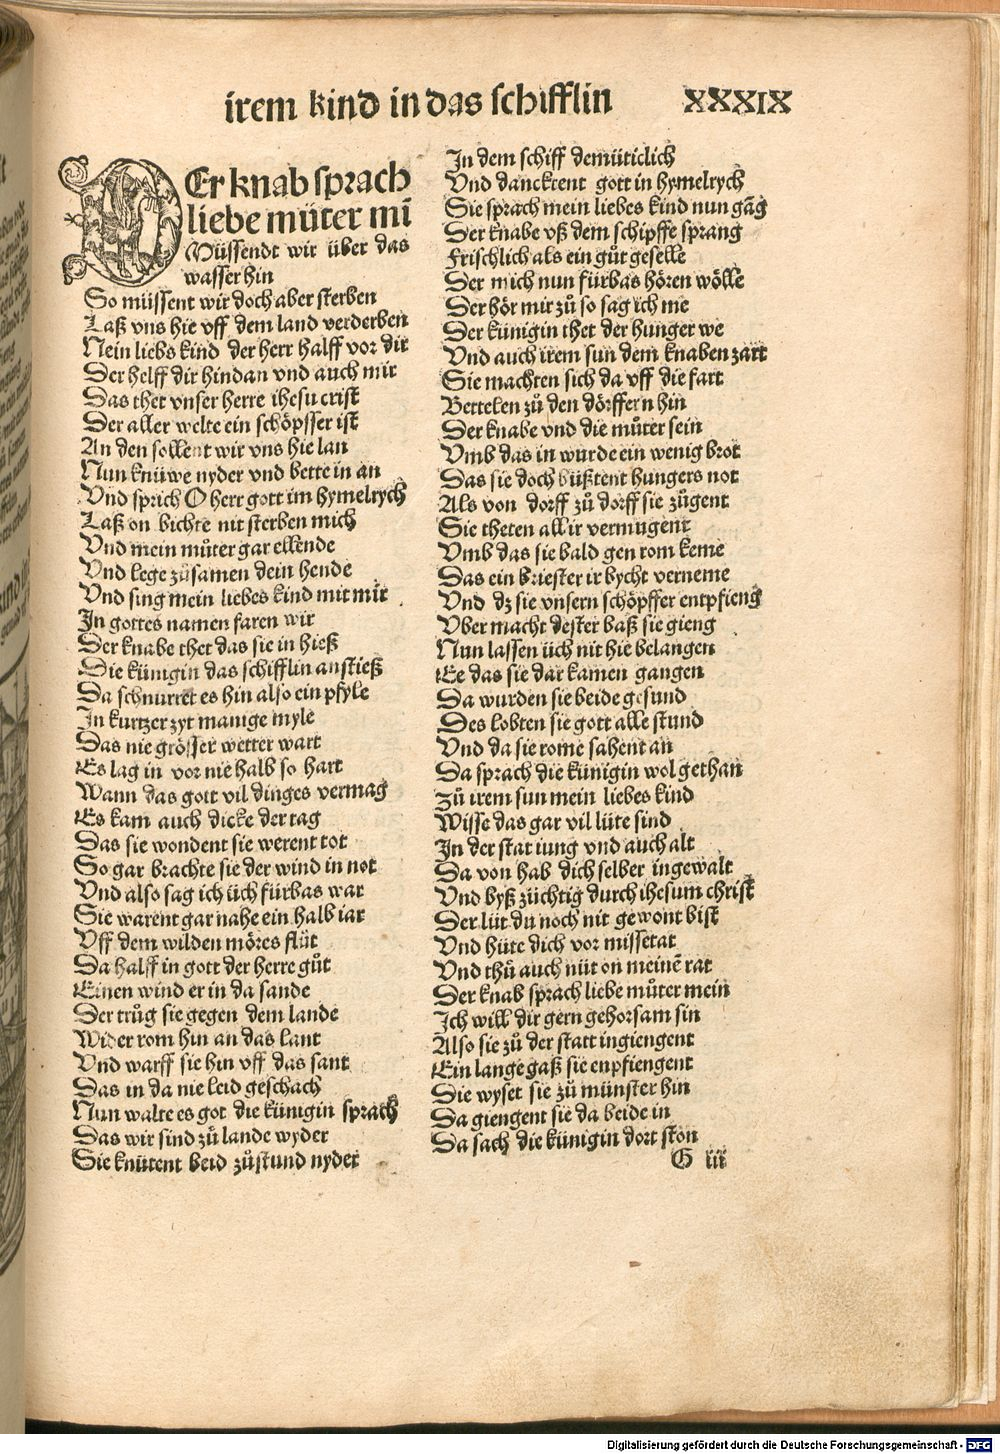 irem kind in das schifflin XXXIX
DEr knab sprach
liebe müter mī
Müssendt wir über das
wasser hin
So müssent wir doch aber sterben
Laß vns hie vff dem land verderben
Nein liebs kind der herr halff vor dir
Der helff dir hindan vnd auch mir
Das thet vnser herre ihesu crist
Der aller welte ein schöpsser ist
An den sollent wir vns hie lan
Nun knüwe nyder vnd bette in an
Vnd sprich O herr gott im hymelrych
Laß on bichte nit sterben mich
Vnd mein můter gar ellende
Vnd lege zůsamen dein hende
Vnd sing mein liebes kind mit mir
In gottes namen faren wir
Der knabe thet das sie in hieß
Die künigin das schifflin anstieß
Da schnurret es hin also ein pfyle
In kurtzer zyt manige myle
Das nie grösser wetter wart
Es lag in vor nie halb so hart
Wann das gott vil dinges vermag
Es kam auch dicke der tag
Das sie wondent sie werent tot
So gar brachte sie der wind in not
Vnd also sag ich üch fürbas war
Sie warent gar nahe ein halb iar
Vff dem wilden möres flůt
Da halff in gott der herre gůt
Einen wind er in da sande
Der trůg sie gegen dem lande
Wider rom hin an das lant
Vnd warff sie hin vff das sant
Das in da nie leid geschach
Nun walte es got die künigin sprach
Das wir sind zů lande wyder
Sie knütent beid zůstund nyder
In dem schiff demüticlich
Vnd dancktent gott in hymelrych
Sie sprach mein liebes kind nun gāg
Der knabe vß dem schipffe sprang
Frischlich als ein gůt geselle
Der mich nun fürbas hören wölle
Der hör mir zů so sag ich me
Der künigin thet der hunger we
Vnd auch irem sun dem knaben zart
Sie machten sich da vff die fart
Bettelen zů den dörffern hin
Der knabe vnd die můter sein
Vmb das in wurde ein wenig brot
Das sie doch bůßtent hungers not
Als von dorff zů dorff sie zůgent
Sie theten all ir vermugent
Vmb das sie bald gen rom keme
Das ein briester ir bycht verneme
Vnd dz sie vnsern schöpffer entpfieng
Vber macht dester baß sie gieng
Nun lassen üch nit hie belangen
Ee das sie dar kamen gangen
Da wurden sie beide gesund
Des lobten sie gott alle stund
Vnd da sie rome sahent an
Da sprach die künigin wol gethan
Zů irem sun mein liebes kind
Wisse das gar vil lüte sind
In der stat iung vnd auch alt
Da von hab dich selber in gewalt
Vnd byß züchtig durch ihesum christ
Der lüt du noch nit gewont bist
Vnd hüte dich vor missetat
Vnd thů auch nüt on meinē rat
Der knab sprach liebe můter mein
Ich will dir gern gehorsam sin
Also sie zů der statt ingiengent
Ein lange gaß sie enpfiengent
Die wyset sie zů münster hin
Da giengent sie da beide in
Da sach die künigin dort ston
G iii
Digitalisierung gefördert durch die Deutsche Forschungsgemeinschaft - DFG